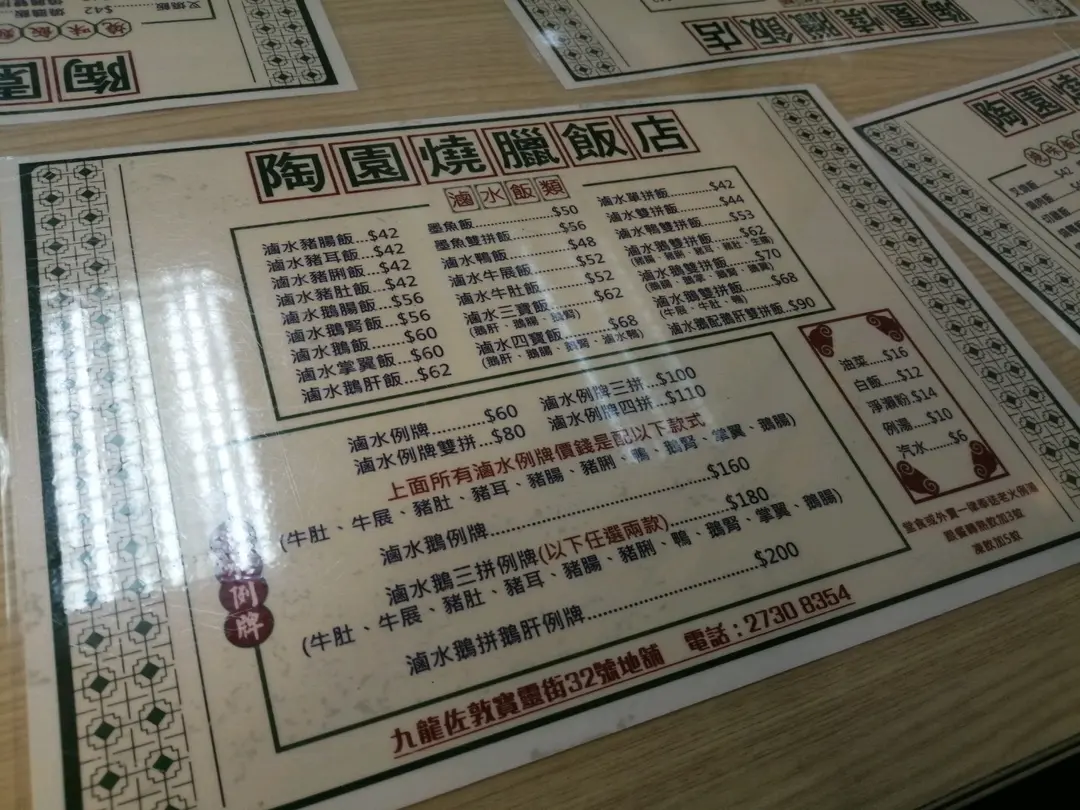 陶園燒臘飯店
滷水飯類
滷水豬腸飯...$42
滷水豬耳飯...$42
滷水豬脷飯...$42
滷水豬肚飯...$42
滷水鵝腸飯...$56
滷水鵝腎飯...$56
滷水鵝飯...$60
滷水掌翼飯...$60
滷水鵝肝飯...$62
墨魚飯...$50
墨魚雙拼飯...$56
滷水鴨飯...$48
滷水牛展飯...$52
滷水牛肚飯...$52
滷水三寶飯...$62
(鵝肝、鵝腸、鵝腎)
滷水四寶飯...$68
(鵝肝、鵝腸、鵝腎、滷水鴨)
滷水單拼飯...$42
滷水雙拼飯...$44
滷水鴨雙拼飯...$53
滷水鵝雙拼飯...$62
滷水鵝雙拼飯...$70
滷水鵝雙拼飯...$68
(牛展、牛肚、鴨)
滷水鵝配鵝肝雙拼飯...$90
滷水例牌...$60
滷水例牌雙拼...$80
滷水例牌三拼...$100
滷水例牌四拼...$110
上面所有滷水例牌價錢是配以下款式
(牛肚、牛展、豬肚、豬耳、豬腸、豬脷、鴨、鵝腎、掌翼、鵝腸)
滷水鵝例牌...$160
滷水鵝三拼例牌(以下任選兩款)...$180
(牛肚、牛展、豬肚、豬耳、豬腸、豬脷、鴨、鵝腎、掌翼、鵝腸)
滷水鵝拼鵝肝例牌...$200
例牌
油菜...$16
白飯...$12
淨瀨粉.$14
例湯...$10
汽水...$6
凍飲加5蚊
九龍佐敦寶靈街32號地舖 電話：2730 8354
陶園燒臘飯店
陶園燒
陶園
燒味飯類
$42